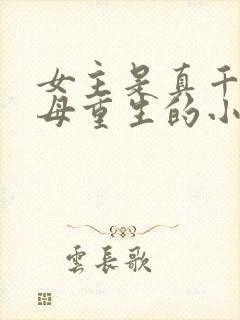 女主是真千
母重生的小
雲長歌